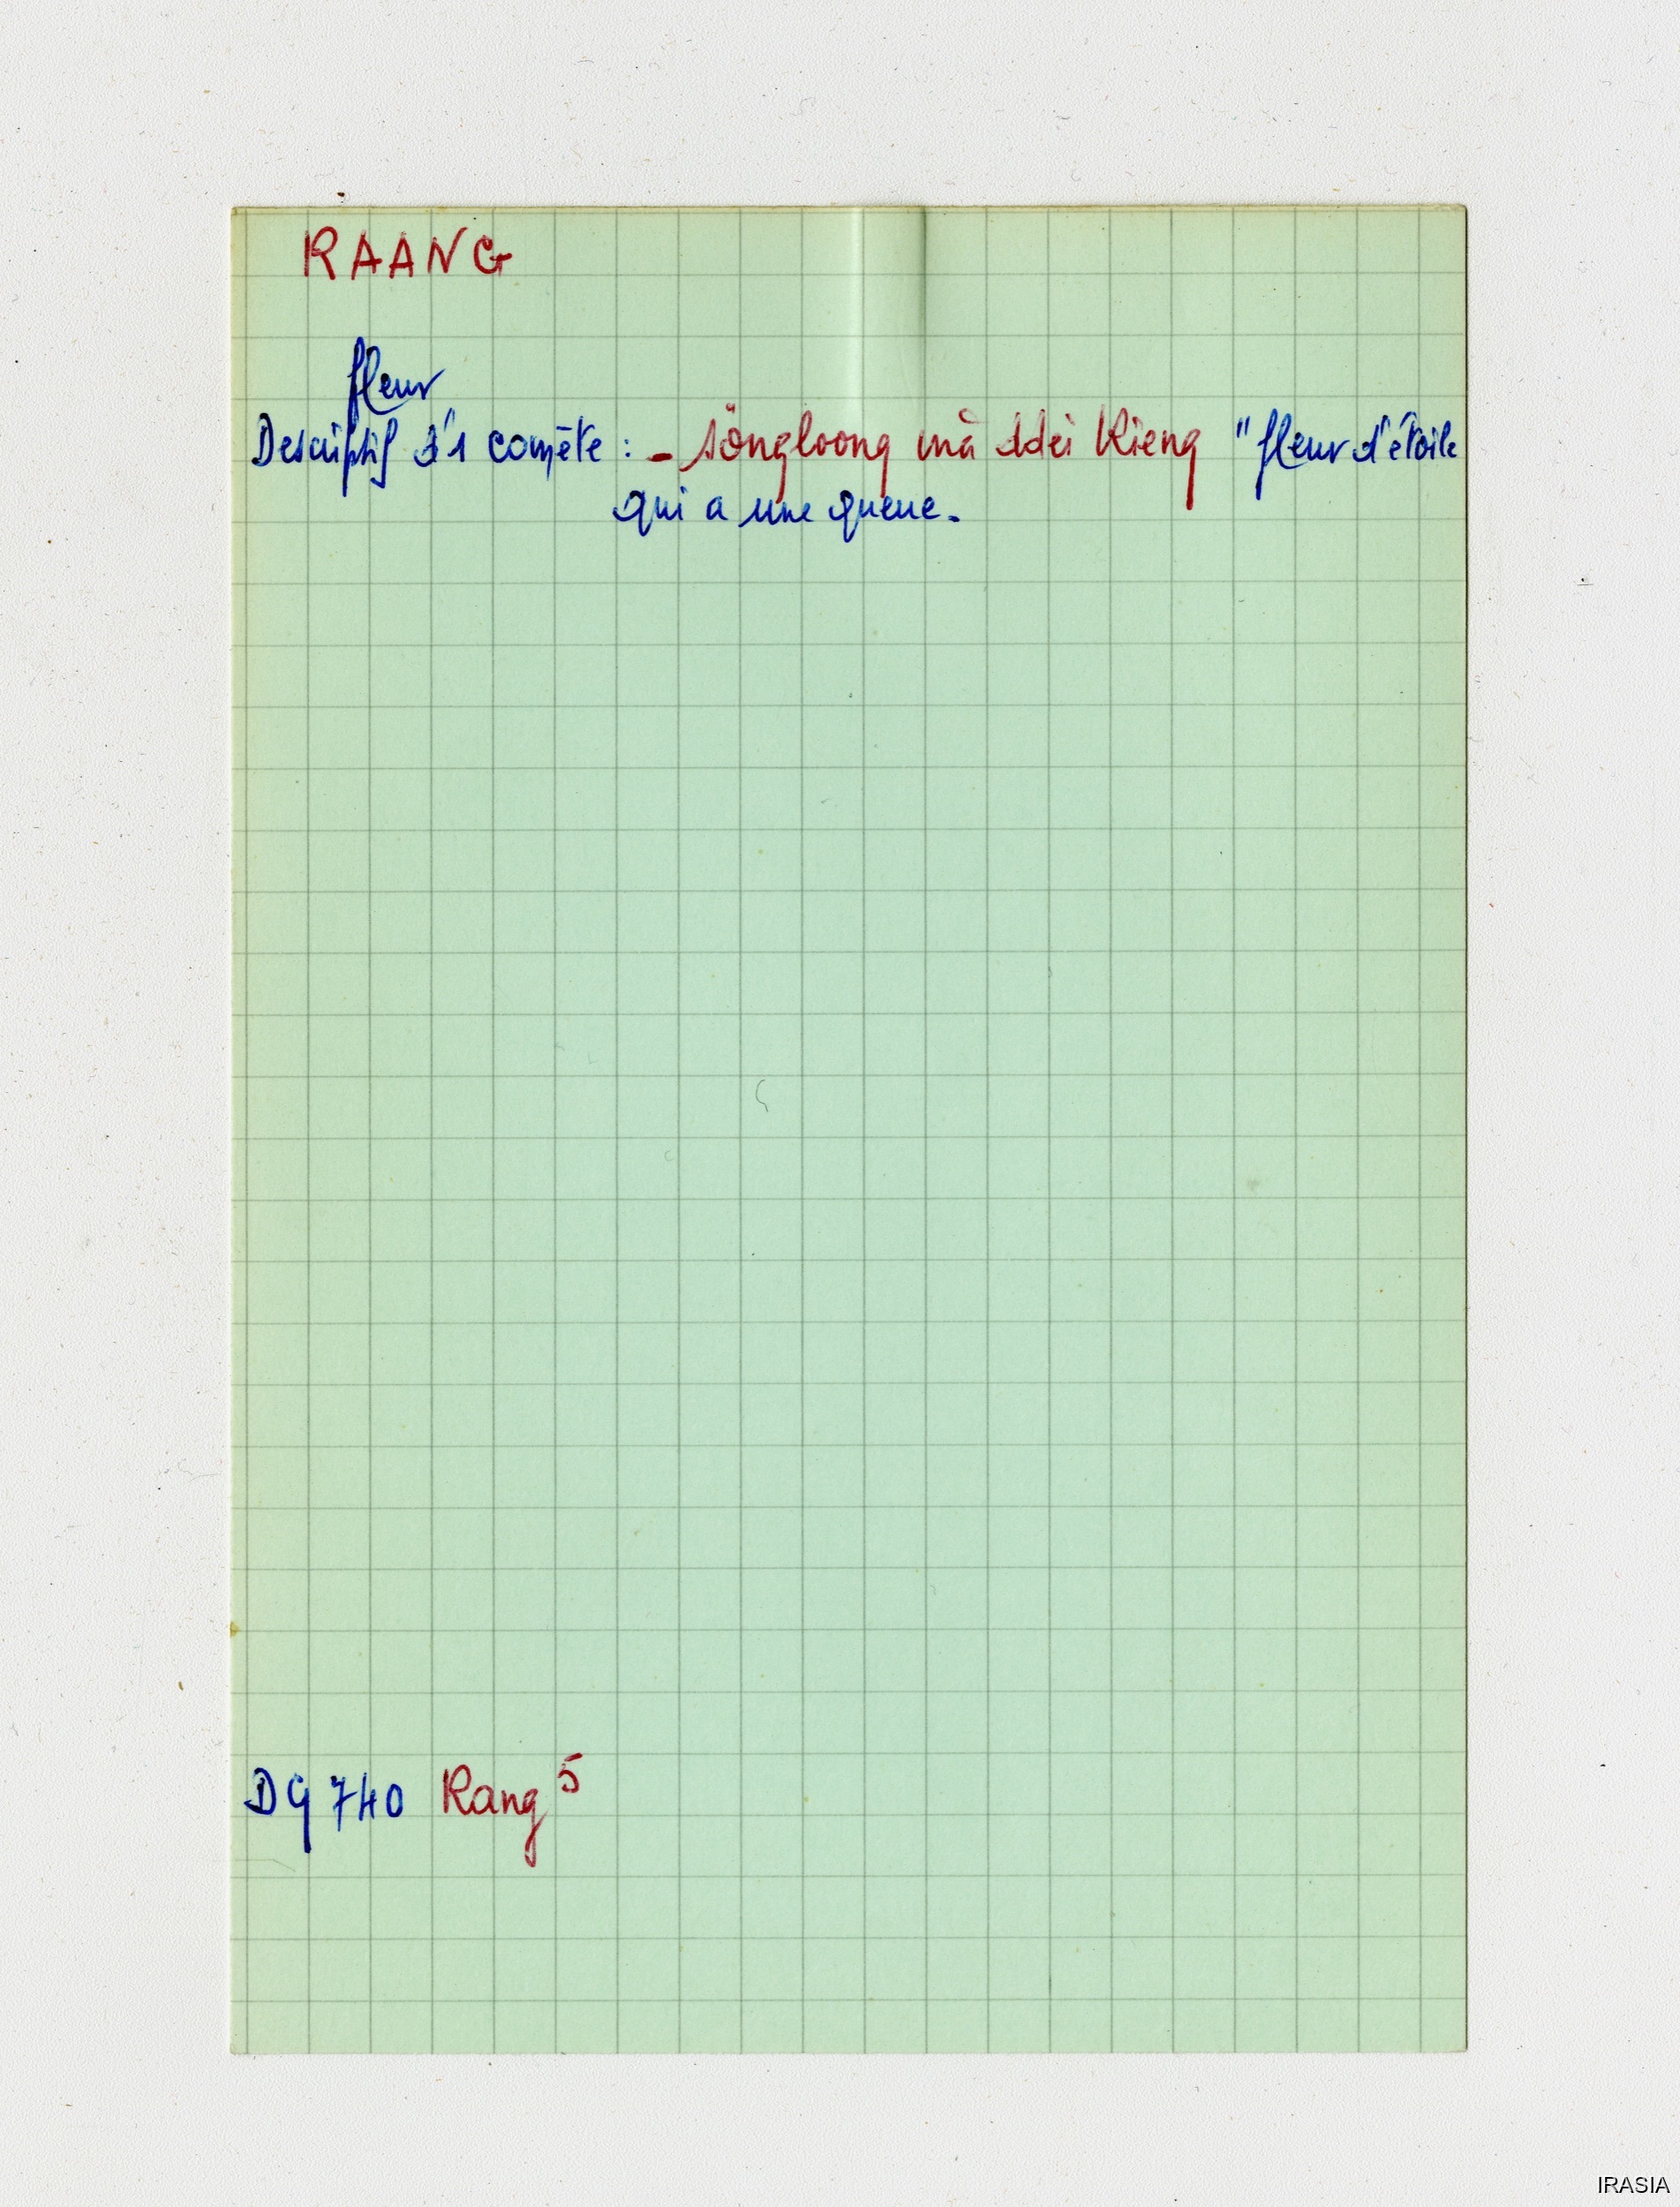 RAANG
fleur
Descriptif d'1 comète : - sŏngloong mà ddei kieng "fleur d'étoile
qui a une queue.
DG 740 Rang 5
IRASIA